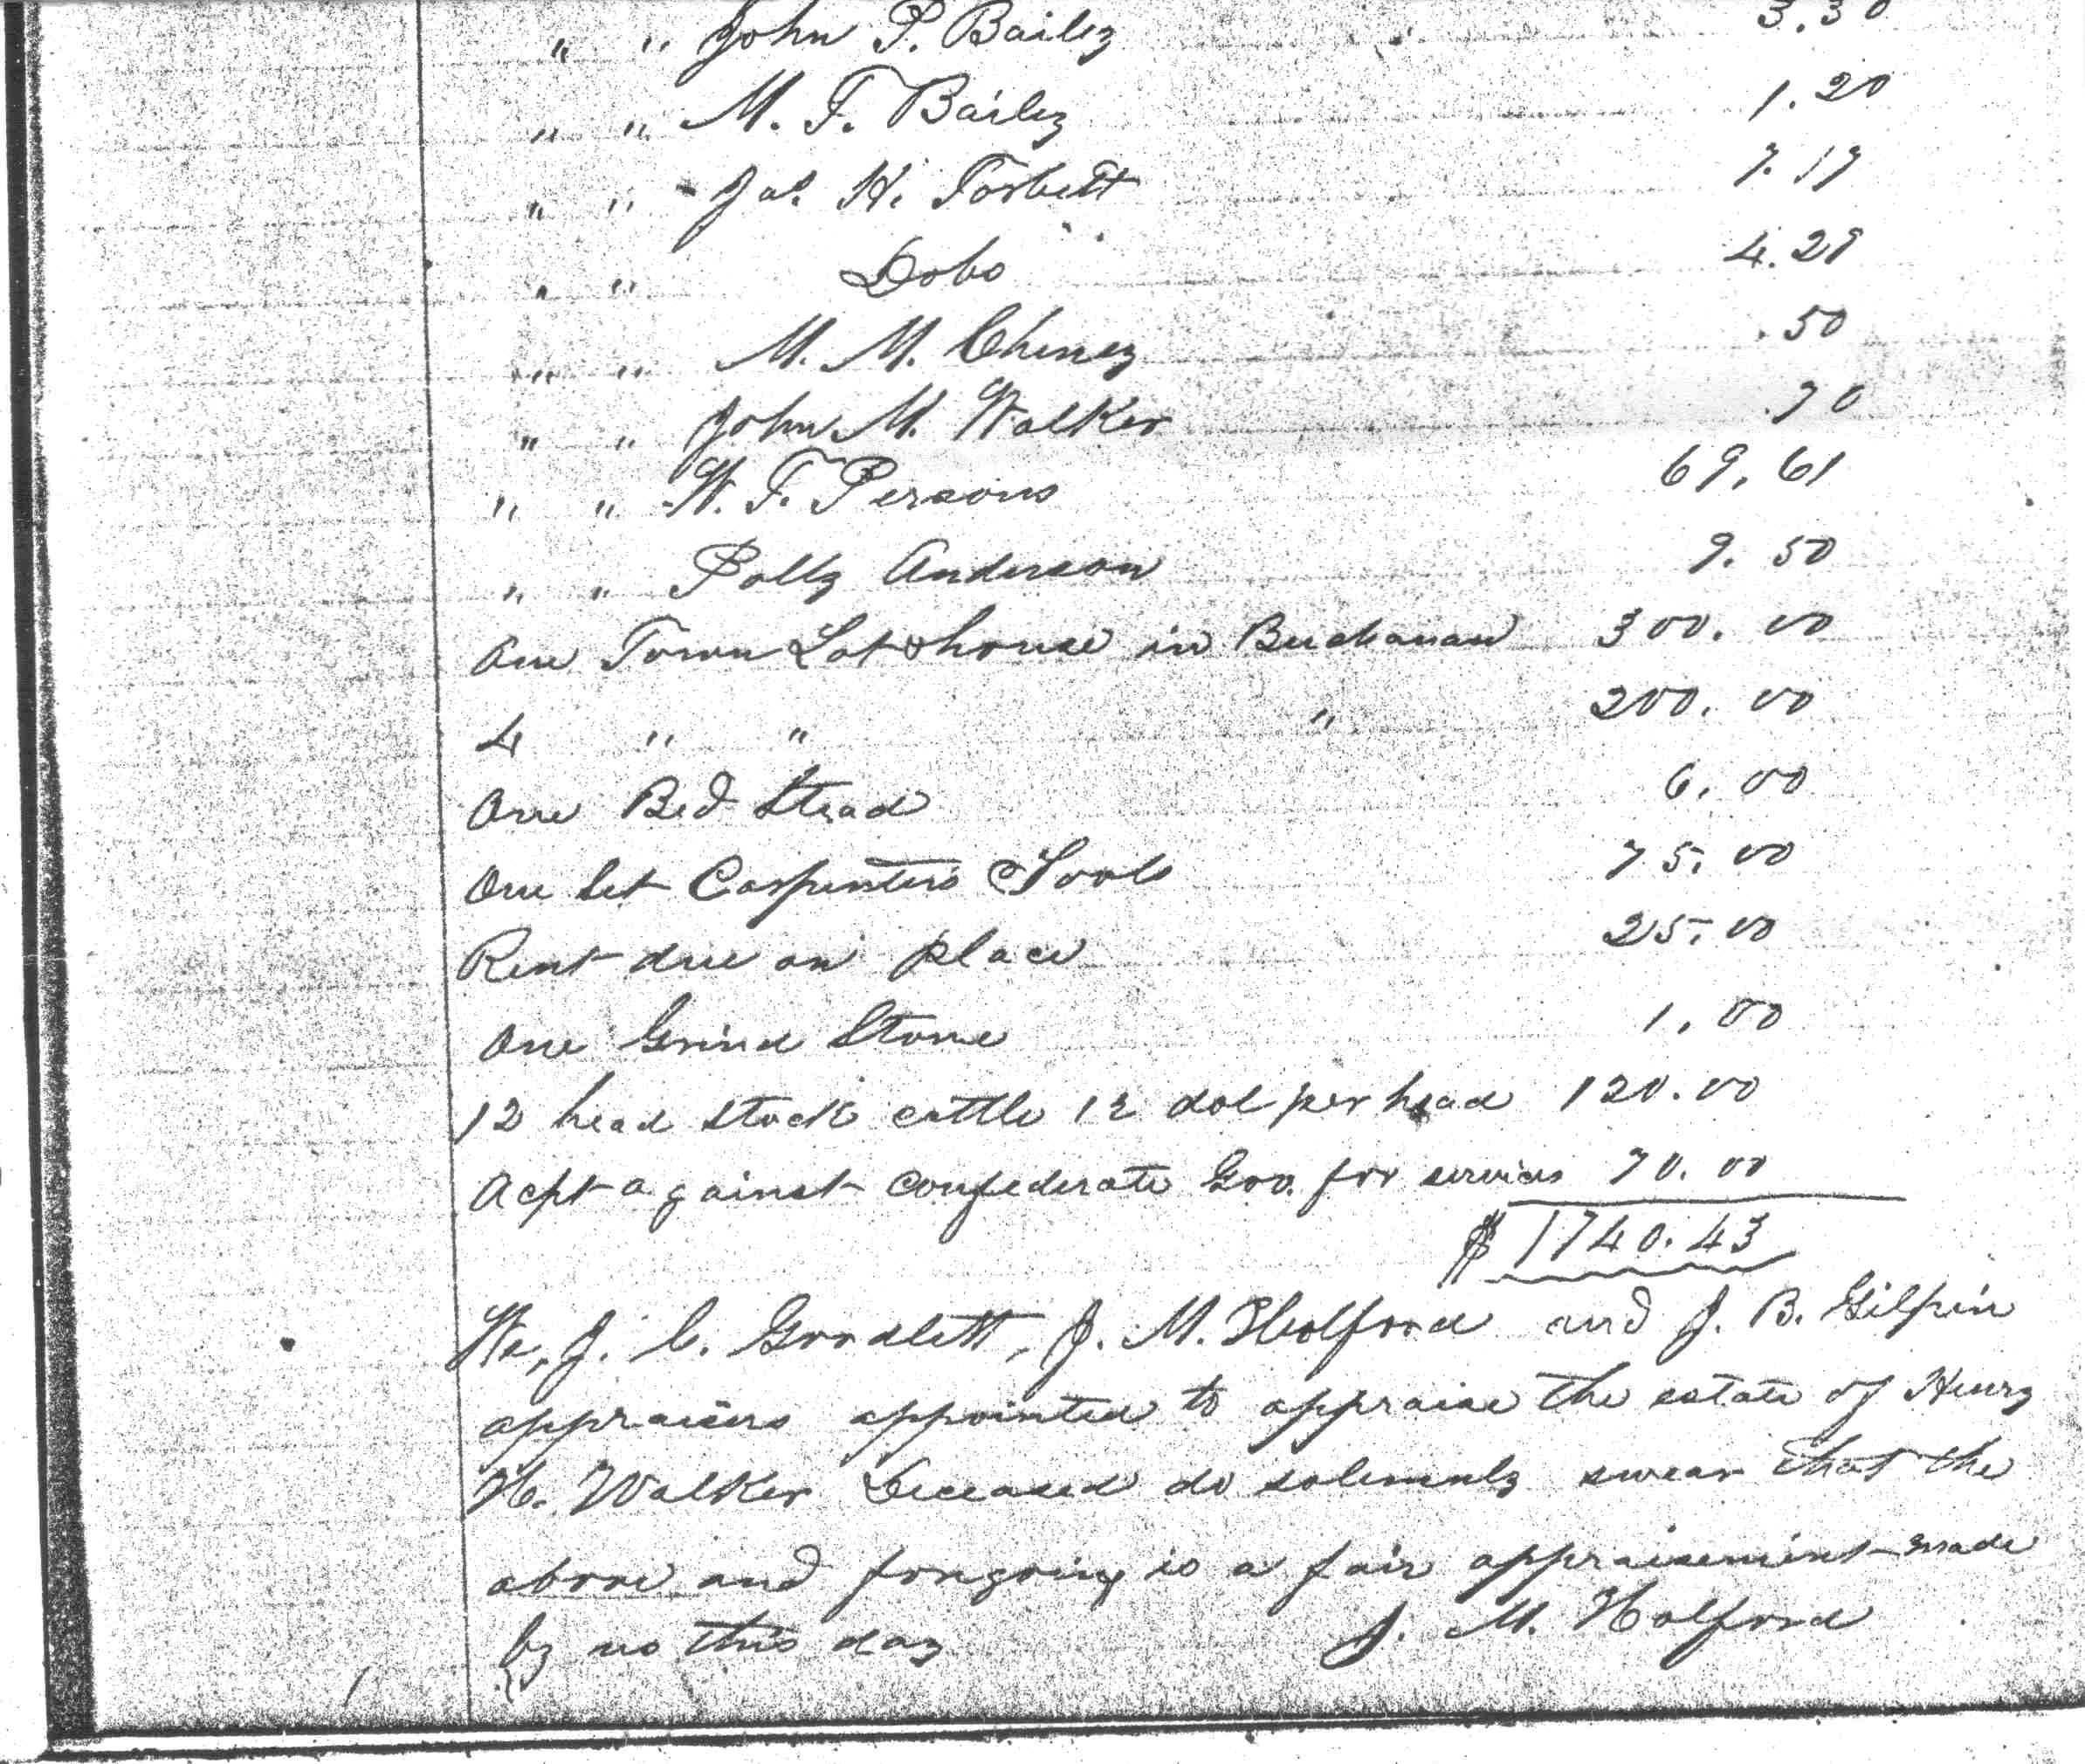 " " John P. Bailey 3.30
" " M. F. Bailey 1.20
" " Jas. H. Torbett 7.17
" " Dobo 4.29
" " M. M. Cheney .50
" " John M. Walker .70
" " W. F. Persons 69.61
" " Polly Anderson 9.50
One Town Lot & house in Buchanan 300.00
4 " " " 200.00
One Bed Stead 6.00
One Set Carpenters Tools 75.00
Rent due on place 25.00
One Grind Stone 1.00
12 head stock cattle 12 dol per head 120.00
Acpt against Confederate Gov. for services 70.00
$ 1740.43
We, J. C. Goodlett, J. M. Holford and J. B. Gilpin
appraisers appointed to appraise the estate of Henry
H. Walker Deceased do solemnly swear that the
above and forgoing is a fair appraisement made
by us this day J. M. Holford